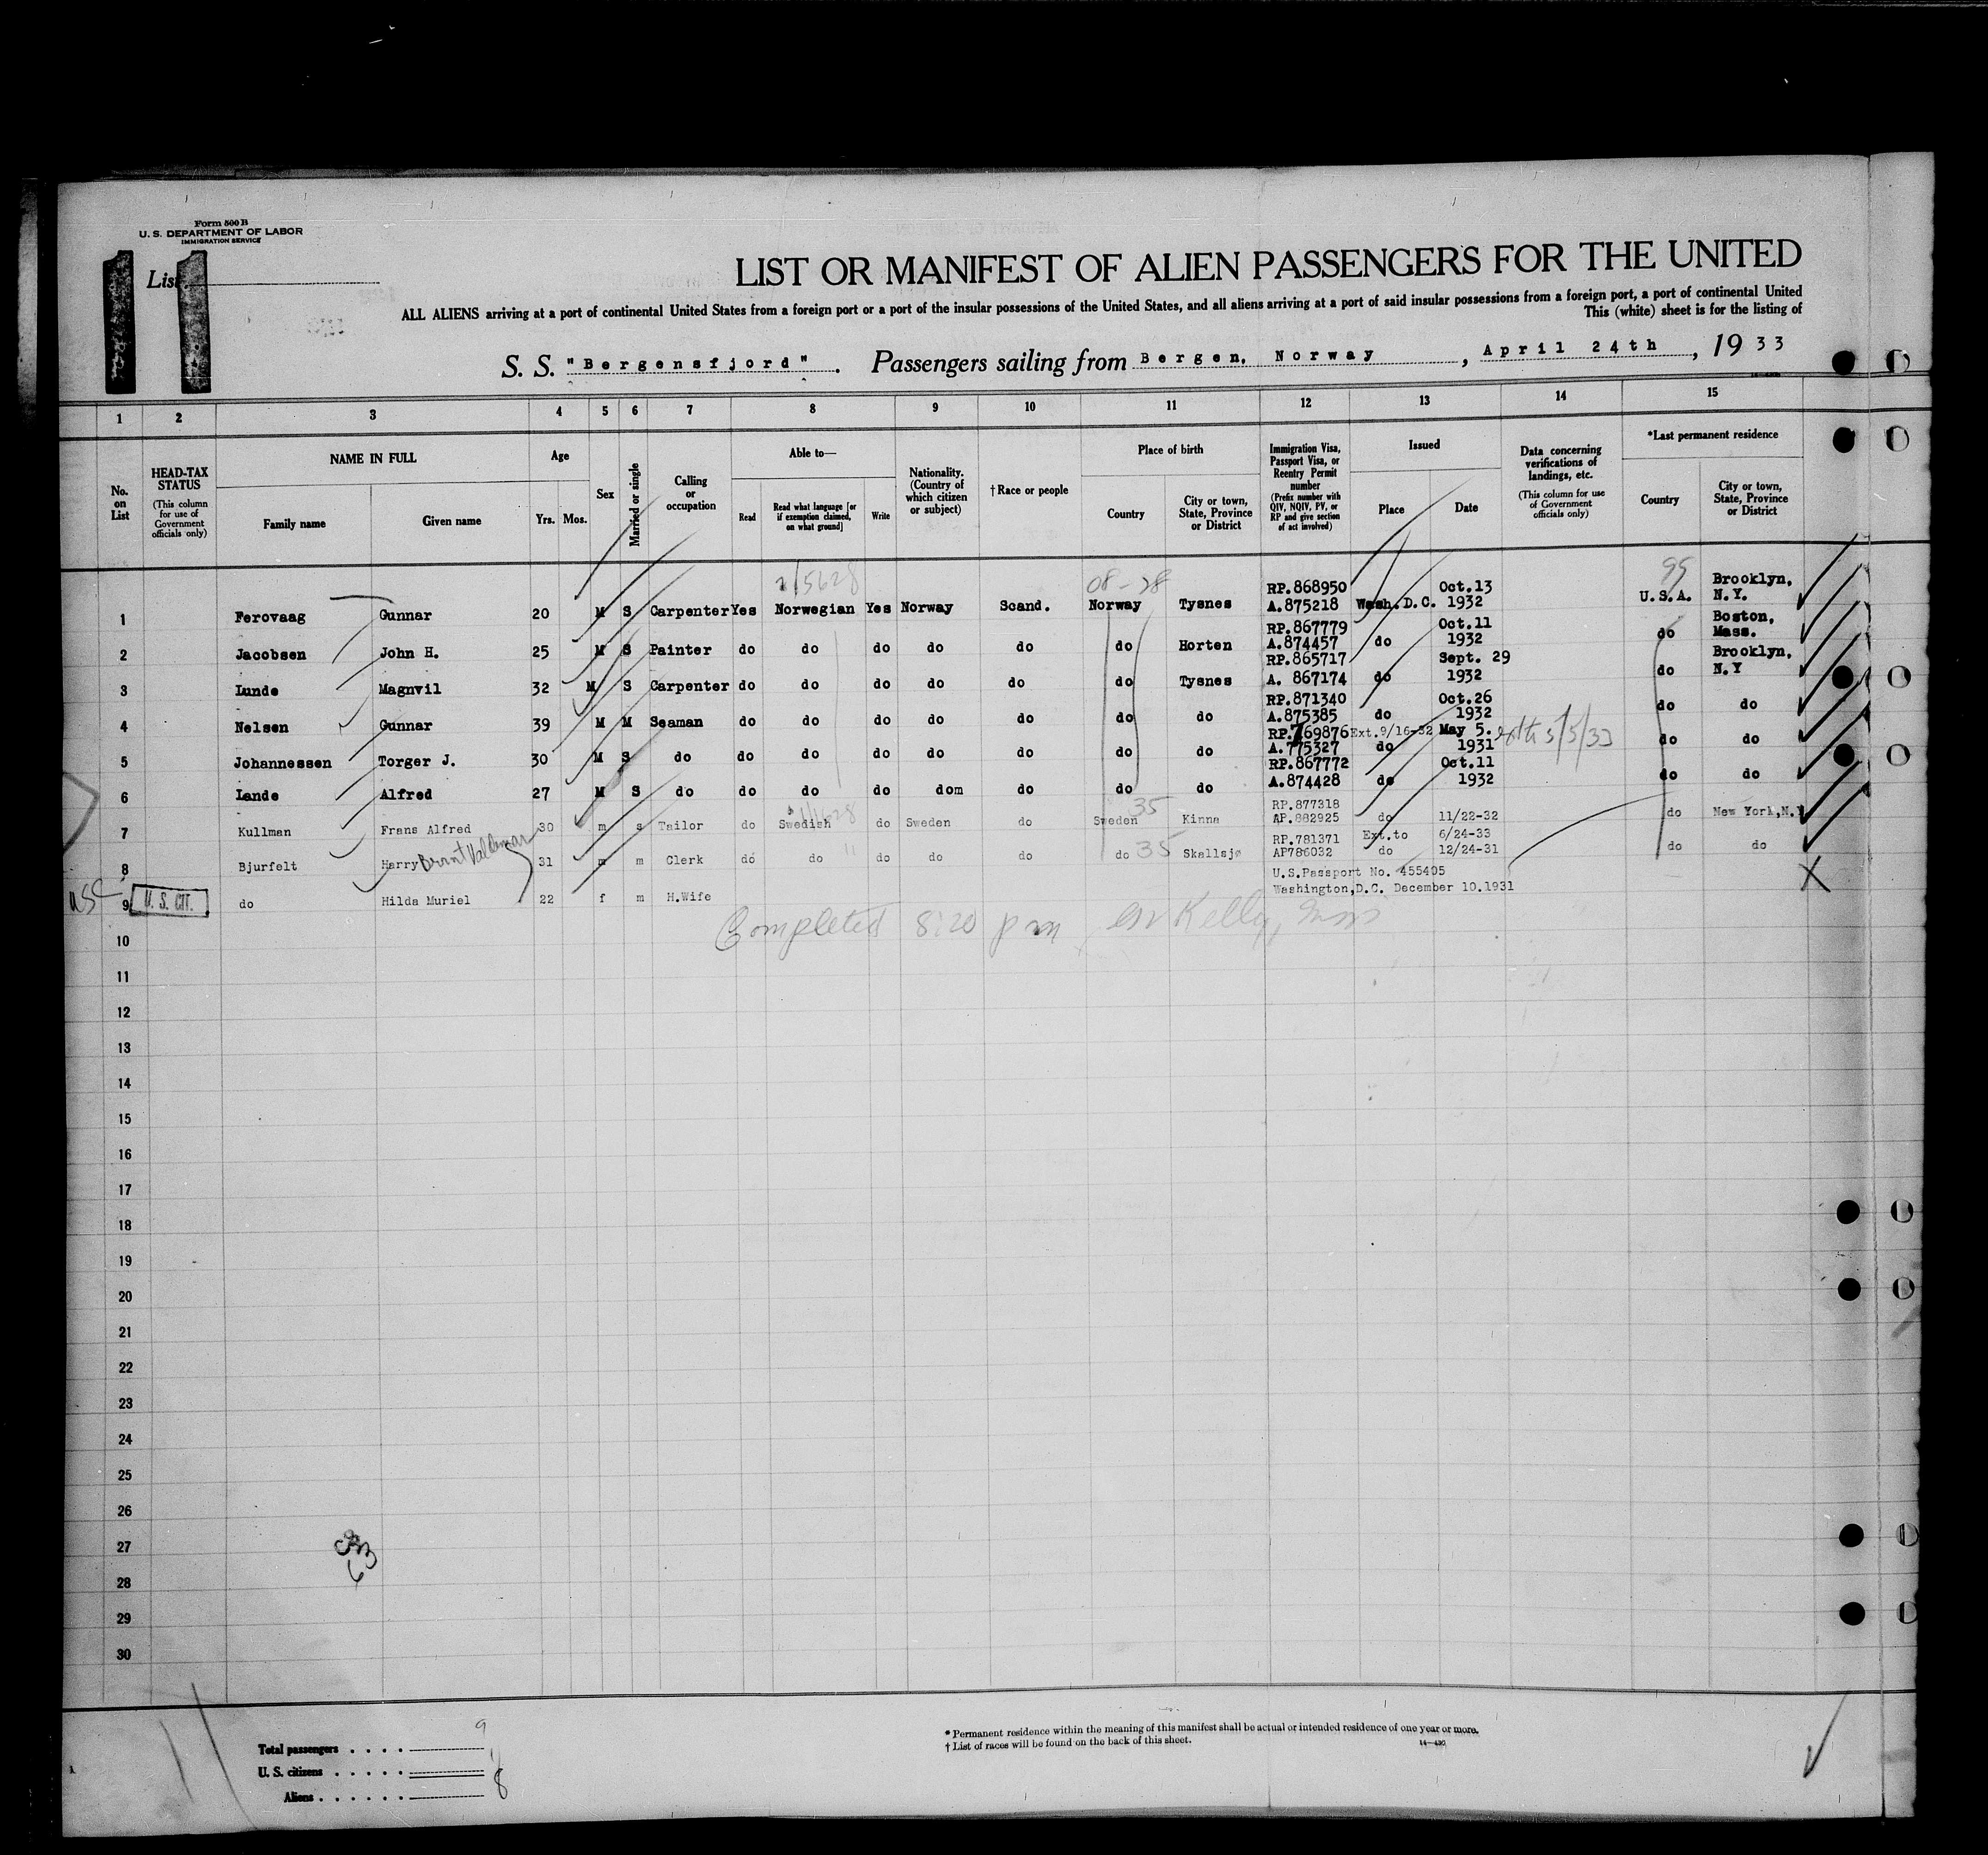 Form 500 B
U. S. DEPARTMENT OF LABOR
IMMIGRATION SERVICE
List
LIST OR MANIFEST OF ALIEN PASSENGERS FOR THE UNITED
ALL ALIENS arriving at a port of continental United States from a foreign port or a port of the insular possessions of the United States, and all aliens arriving at a port of said insular possessions from a foreign port, a port of continental United
This (white) sheet is for the listing of
S. S. "Bergensfjord". Passengers sailing from Bergen, Norway, April 24th, 1933
1 2 3 4 5 6 7 8 9 10 11 12 13 14 15
No. on List
HEAD-TAX STATUS (This column for use of Government officials only)
NAME IN FULL Family name Given name
Age Yrs. Mos.
Sex
Married or single
Calling or occupation
Able to— Read Read what language [or if exemption claimed, on what ground] Write
Nationality. (Country of which citizen or subject)
†Race or people
Place of birth Country City or town, State, Province or District
Immigration Visa, Passport Visa, or Reentry Permit number (Prefix number with QIV, NQIV, PV, or RP and give section of act involved)
Issued Place Date
Data concerning verifications of landings, etc. (This column for use of Government officials only)
*Last permanent residence Country City or town, State, Province or District
08-28 99
1 Ferovaag Gunnar 20 M S Carpenter Yes Norwegian Yes Norway Scand. Norway Tysnes RP.868950 A.875218 Wash.D.C. Oct.13 1932 U.S.A. Brooklyn, N.Y.
2 Jacobsen John H. 25 M S Painter do do do do do do Horten RP.867779 A.874457 do Oct.11 1932 do Boston, Mass.
3 Lunde Magnvil 32 M S Carpenter do do do do do do Tysnes RP.865717 A. 867174 do Sept. 29 1932 do Brooklyn, N.Y
4 Nelsen Gunnar 39 M M Seaman do do do do do do do RP.871340 A.875385 do Oct.26 1932 do do
5 Johannessen Torger J. 30 M S do do do do do do do do RP.769876 A.775327 Ext.9/16-32 do May 5. 1931 5/5/33 do do
6 Lande Alfred 27 M S do do do do dom do do do RP.867772 A.874428 do Oct.11 1932 do do
7 Kullman Frans Alfred 30 m s Tailor do Swedish do Sweden do Sweden 35 Kinna RP.877318 AP.882925 do 11/22-32 do New York,N.Y
8 Bjurfelt Harry Brant Valdemar 31 m m Clerk do do do do do do 35 Skallsjø RP.781371 AP786032 Ext.to do 6/24-33 12/24-31 do do
USC 9 U. S. CIT. do Hilda Muriel 22 f m H.Wife U.S.Passport No. 455405 Washington,D.C. December 10.1931
Completed 8:20 pm Kelly,
10
11
12
13
14
15
16
17
18
19
20
21
22
23
24
25
26
27
28
29
30
Total passengers . . . . 9
U. S. citizens . . . . . 1
Aliens . . . . . . 8
* Permanent residence within the meaning of this manifest shall be actual or intended residence of one year or more.
† List of races will be found on the back of this sheet.
14—430